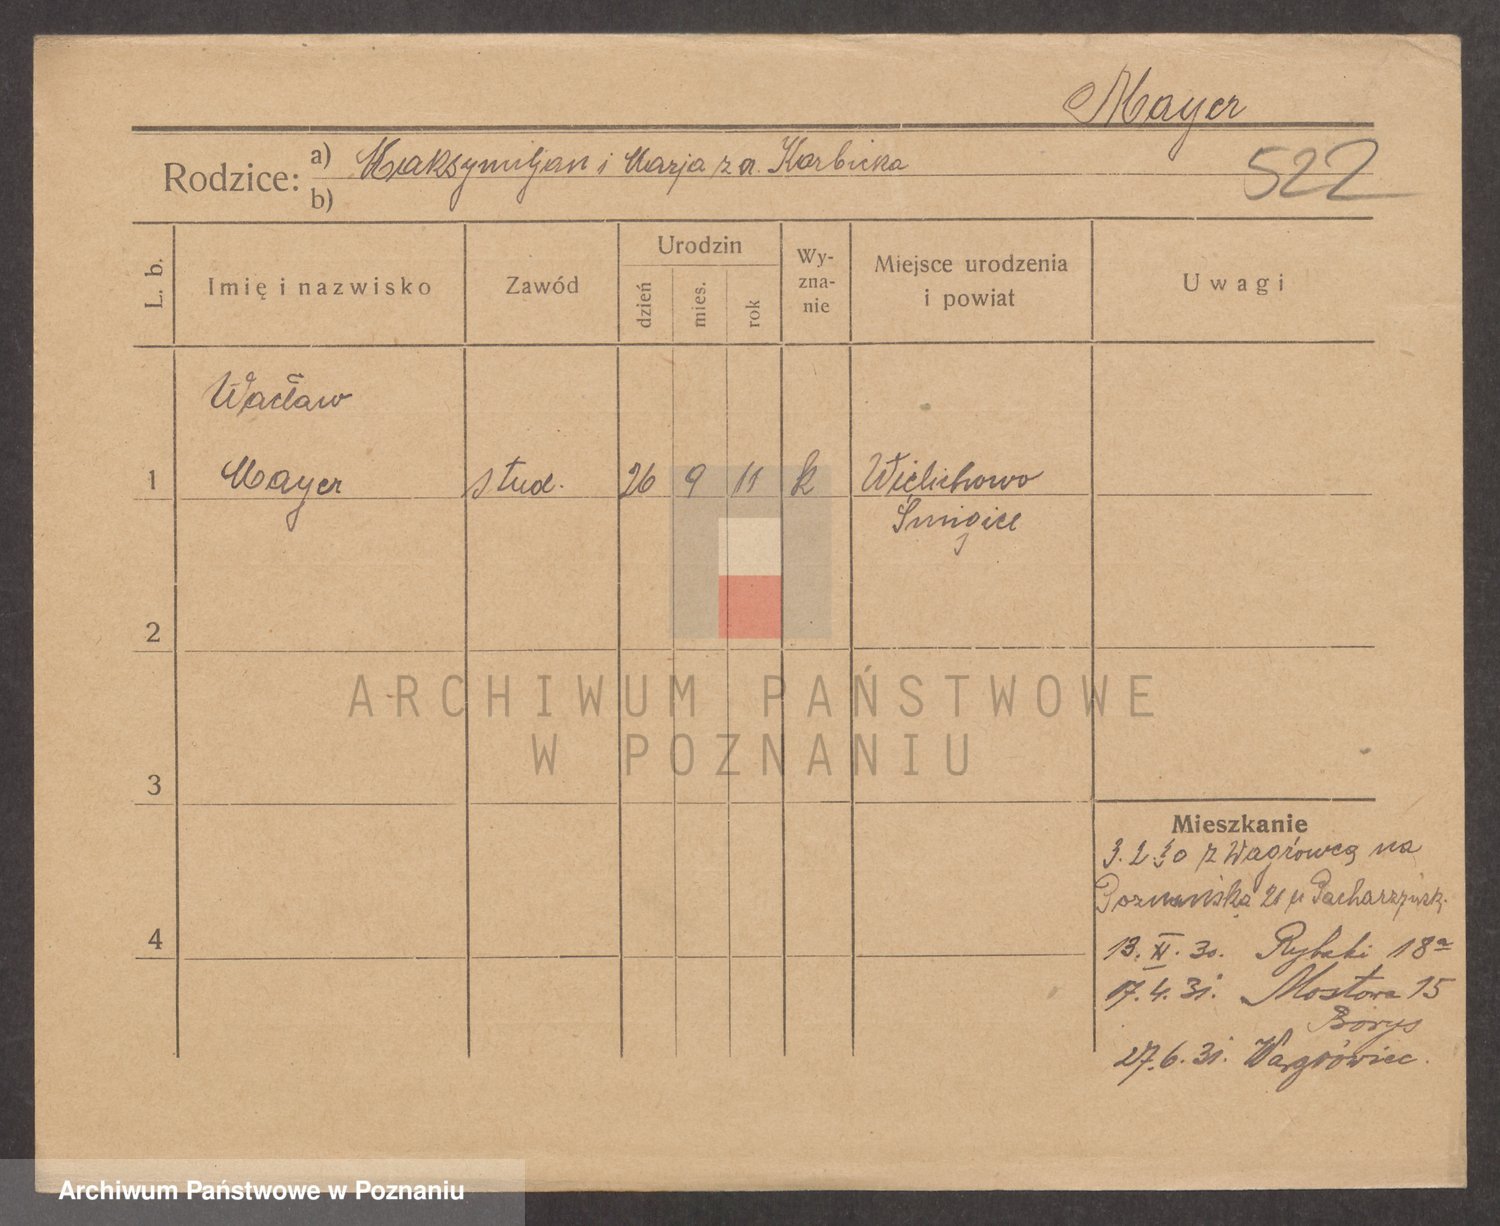 Mayer
522
Rodzice: a) Maksymiljan i Marja z d. Korbicka
b)
L. b. Imię i nazwisko Zawód Urodzin dzień mies. rok Wyznanie Miejsce urodzenia i powiat Uwagi
Wacław
1 Mayer stud. 26 9 11 k Wielichowo
Śmigiel
2
ARCHIWUM PAŃSTWOWE
W POZNANIU
3
Mieszkanie
3. 2 30 z Wągrówca na
Poznańska 21
4
13. XI. 30. Rybaki 18a
17. 4. 31. Mostowa 15
Borys
27. 6. 31. Wągrówiec.
Archiwum Państwowe w Poznaniu